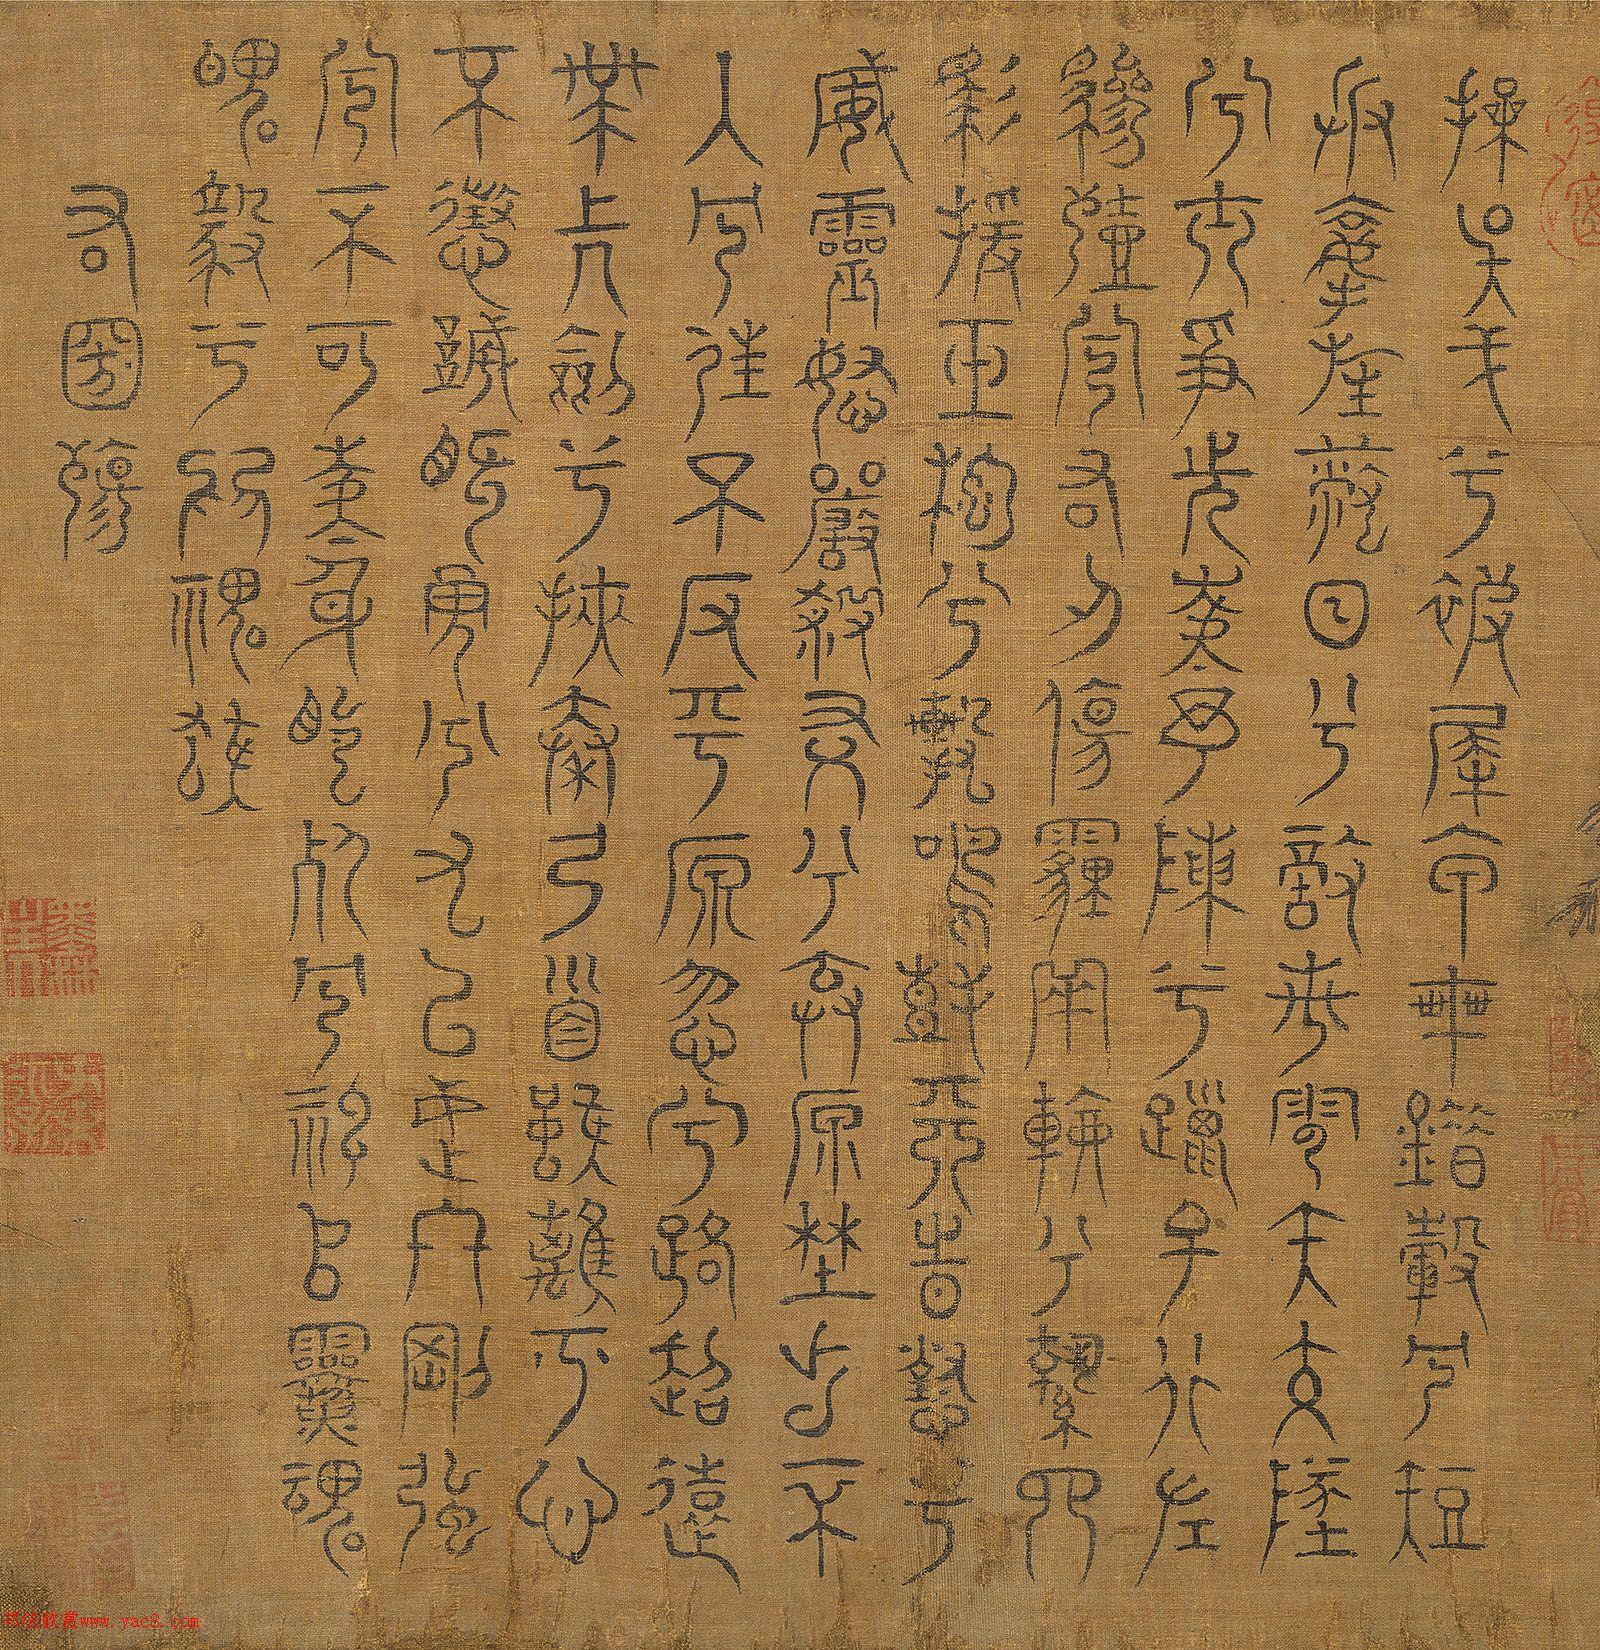 操吳戈兮被犀甲車錯轂兮短
兵接旌蔽日兮敵若雲矢交墜
兮士爭先凌余陣兮躐余行左
驂殪兮右刃傷霾兩輪兮縶四
馬援玉枹兮擊鳴鼓天時懟兮
威靈怒嚴殺盡兮棄原野出不
入兮往不反平原忽兮路超遠
帶長劍兮挾秦弓首雖離兮心
不懲誠既勇兮又以武終剛強
兮不可凌身既死兮神以靈魂
魄毅兮為鬼雄
右國殤
书法欣赏www.yac8.com